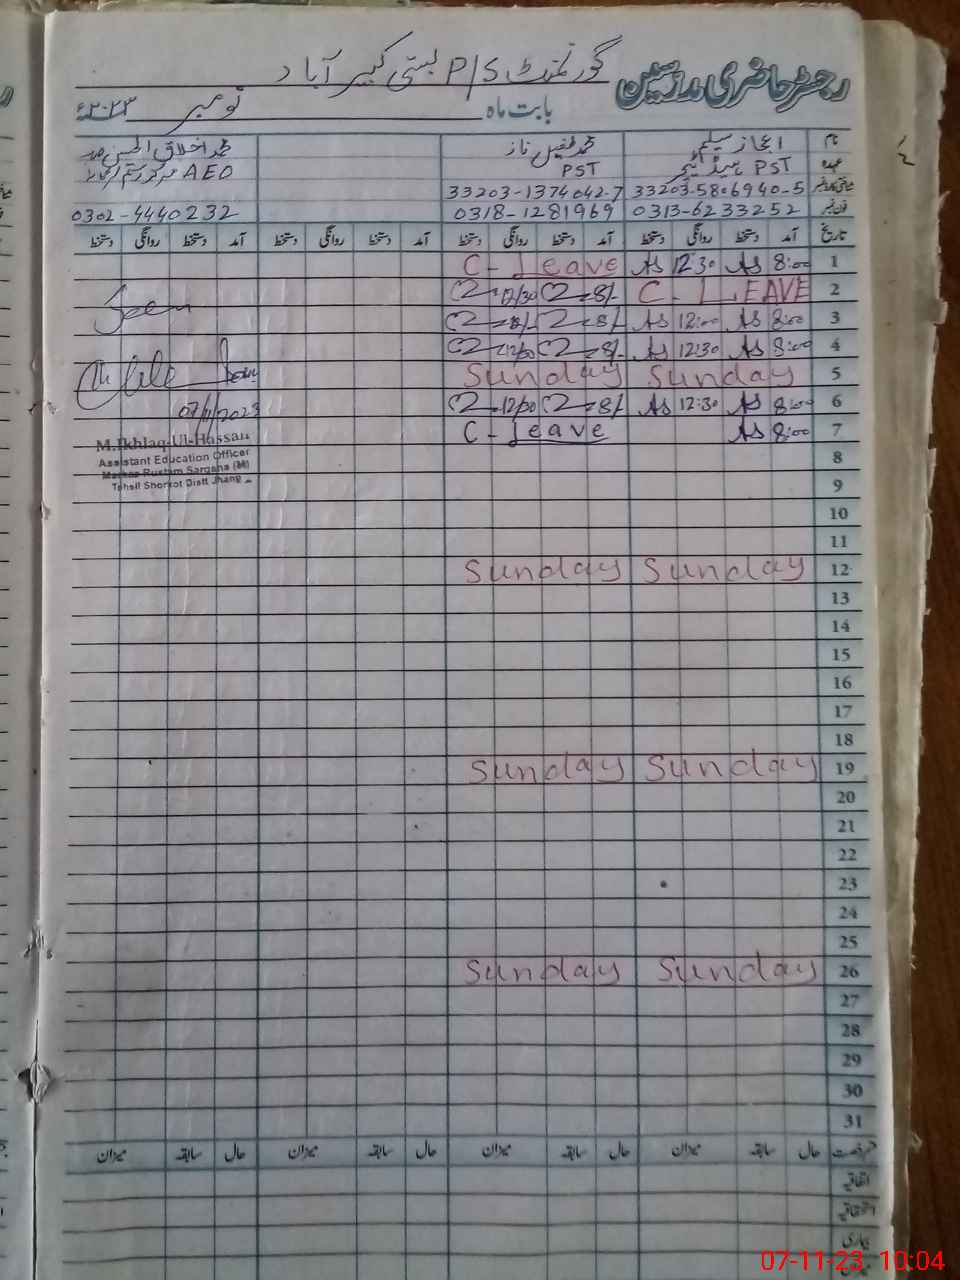 رجسٹر حاضری مدرسین گورنمنٹ P/S بستی کبیر آباد
بابت ماہ نومبر ۲۰۲۳ء
نام اعجاز سلیم محمد طفیل ناز محمد اخلاق الحسن
عہدہ PST ہیڈ ٹیچر PST AEO مرکز رستم
33203-5806940-5 33203-1374042-7
فون نمبر 0313-6233252 0318-1281969 0302-4440232
تاریخ آمد دستخط روانگی دستخط آمد دستخط روانگی دستخط آمد دستخط روانگی دستخط آمد دستخط روانگی دستخط
1 8:00 AS 12:30 AS C-Leave
2 C-LEAVE 8/- 12/30
3 8:00 AS 12:00 AS 8/-
4 8:00 AS 12:30 AS 8/- 12/30
5 Sunday Sunday
6 8:00 AS 12:30 AS 8/- 12/30
7 8:00 AS C-Leave
8
9
10
11
12 Sunday Sunday
13
14
15
16
17
18
19 Sunday Sunday
20
21
22
23
24
25
26 Sunday Sunday
27
28
29
30
31
Seen
07/11/2023
M.Ikhlaq-Ul-Hassan
Assistant Education Officer
Markaz Rustam Sargana (M)
Tehsil Shorkot Distt Jhang
حال سابقہ میزان حال سابقہ میزان حال سابقہ میزان حال سابقہ میزان
اتفاقیہ
استحقاقیہ
بیماری
07-11-23 10:04